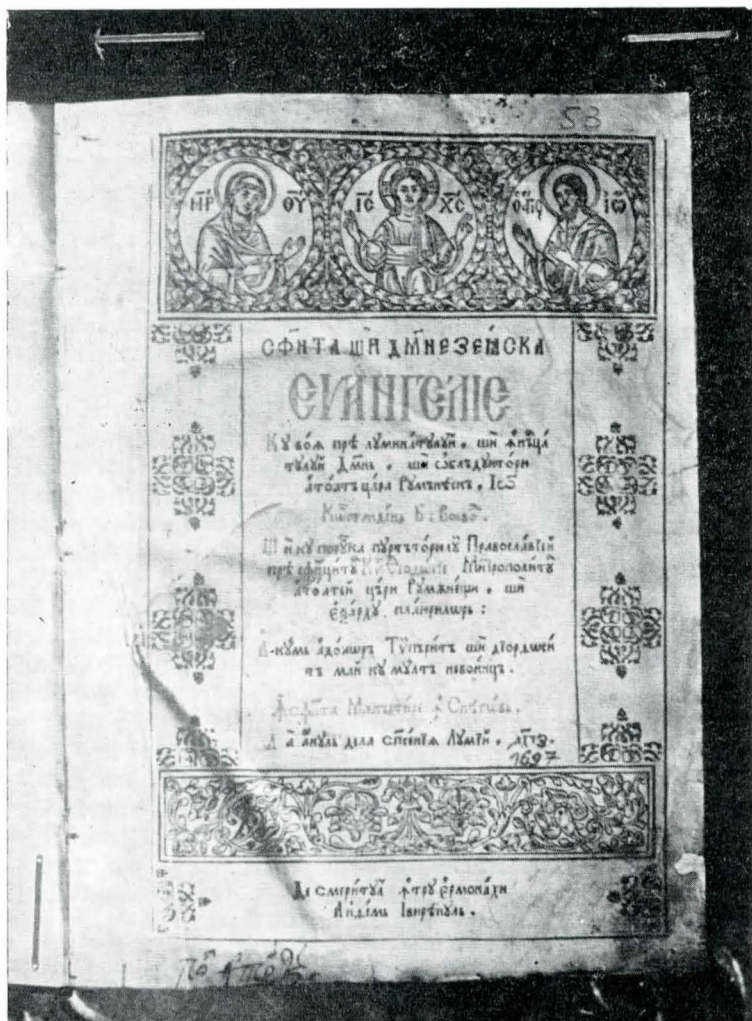 58
МР ѲУ ІС ХС О АГІОС ІѠ
СФ҃НТА ШИ ДМ҃НЕЗЕѧСКА
ЕѴАНГЕЛІЕ
Кꙋ воѧ прѣ лꙋминатꙋлꙋй, ши ꙟнѣлца
тꙋлꙋй Дм҃нь, ши ѡблъдꙋитори
атоатъ цара Рꙋмѫнѣск, Іѡ҃
Кѡнстандинь Б: Воево҃д.
Ши кꙋ порꙋнка пꙋртъторюлꙋ Православїей
прѣ сфинцитꙋ Кѵ҃р Ѳеодосїе Митрополитꙋ
атоатей църи Рꙋмѫнещи, ши
Еѯархꙋ плаюрилѡръ:
Акꙋмь адоаѡръ Тѵпърит ши дїорѳоси
тъ май кꙋ мꙋлт невоинцъ.
ꙟ сф҃нта Мънъстире ꙟ Снѣговь.
Ла анꙋль дела сп҃сенїѧ Лꙋмїй, ахч҃з.
1697
Де смеритꙋл ꙟтрꙋ ермонахи
Анѳимь Івирѣнꙋль.